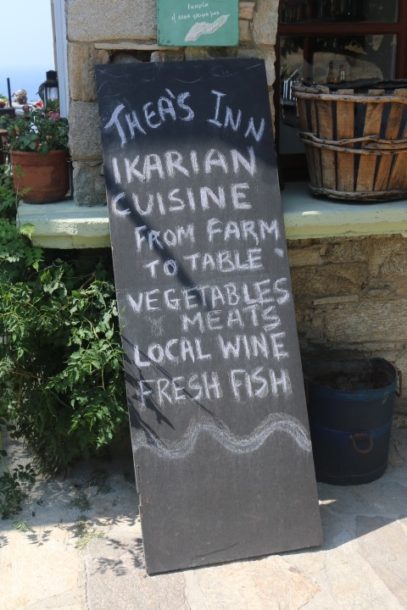 THEA'S INN
IKARIAN
CUISINE
FROM FARM
TO TABLE
VEGETABLES
MEATS
LOCAL WINE
FRESH FISH